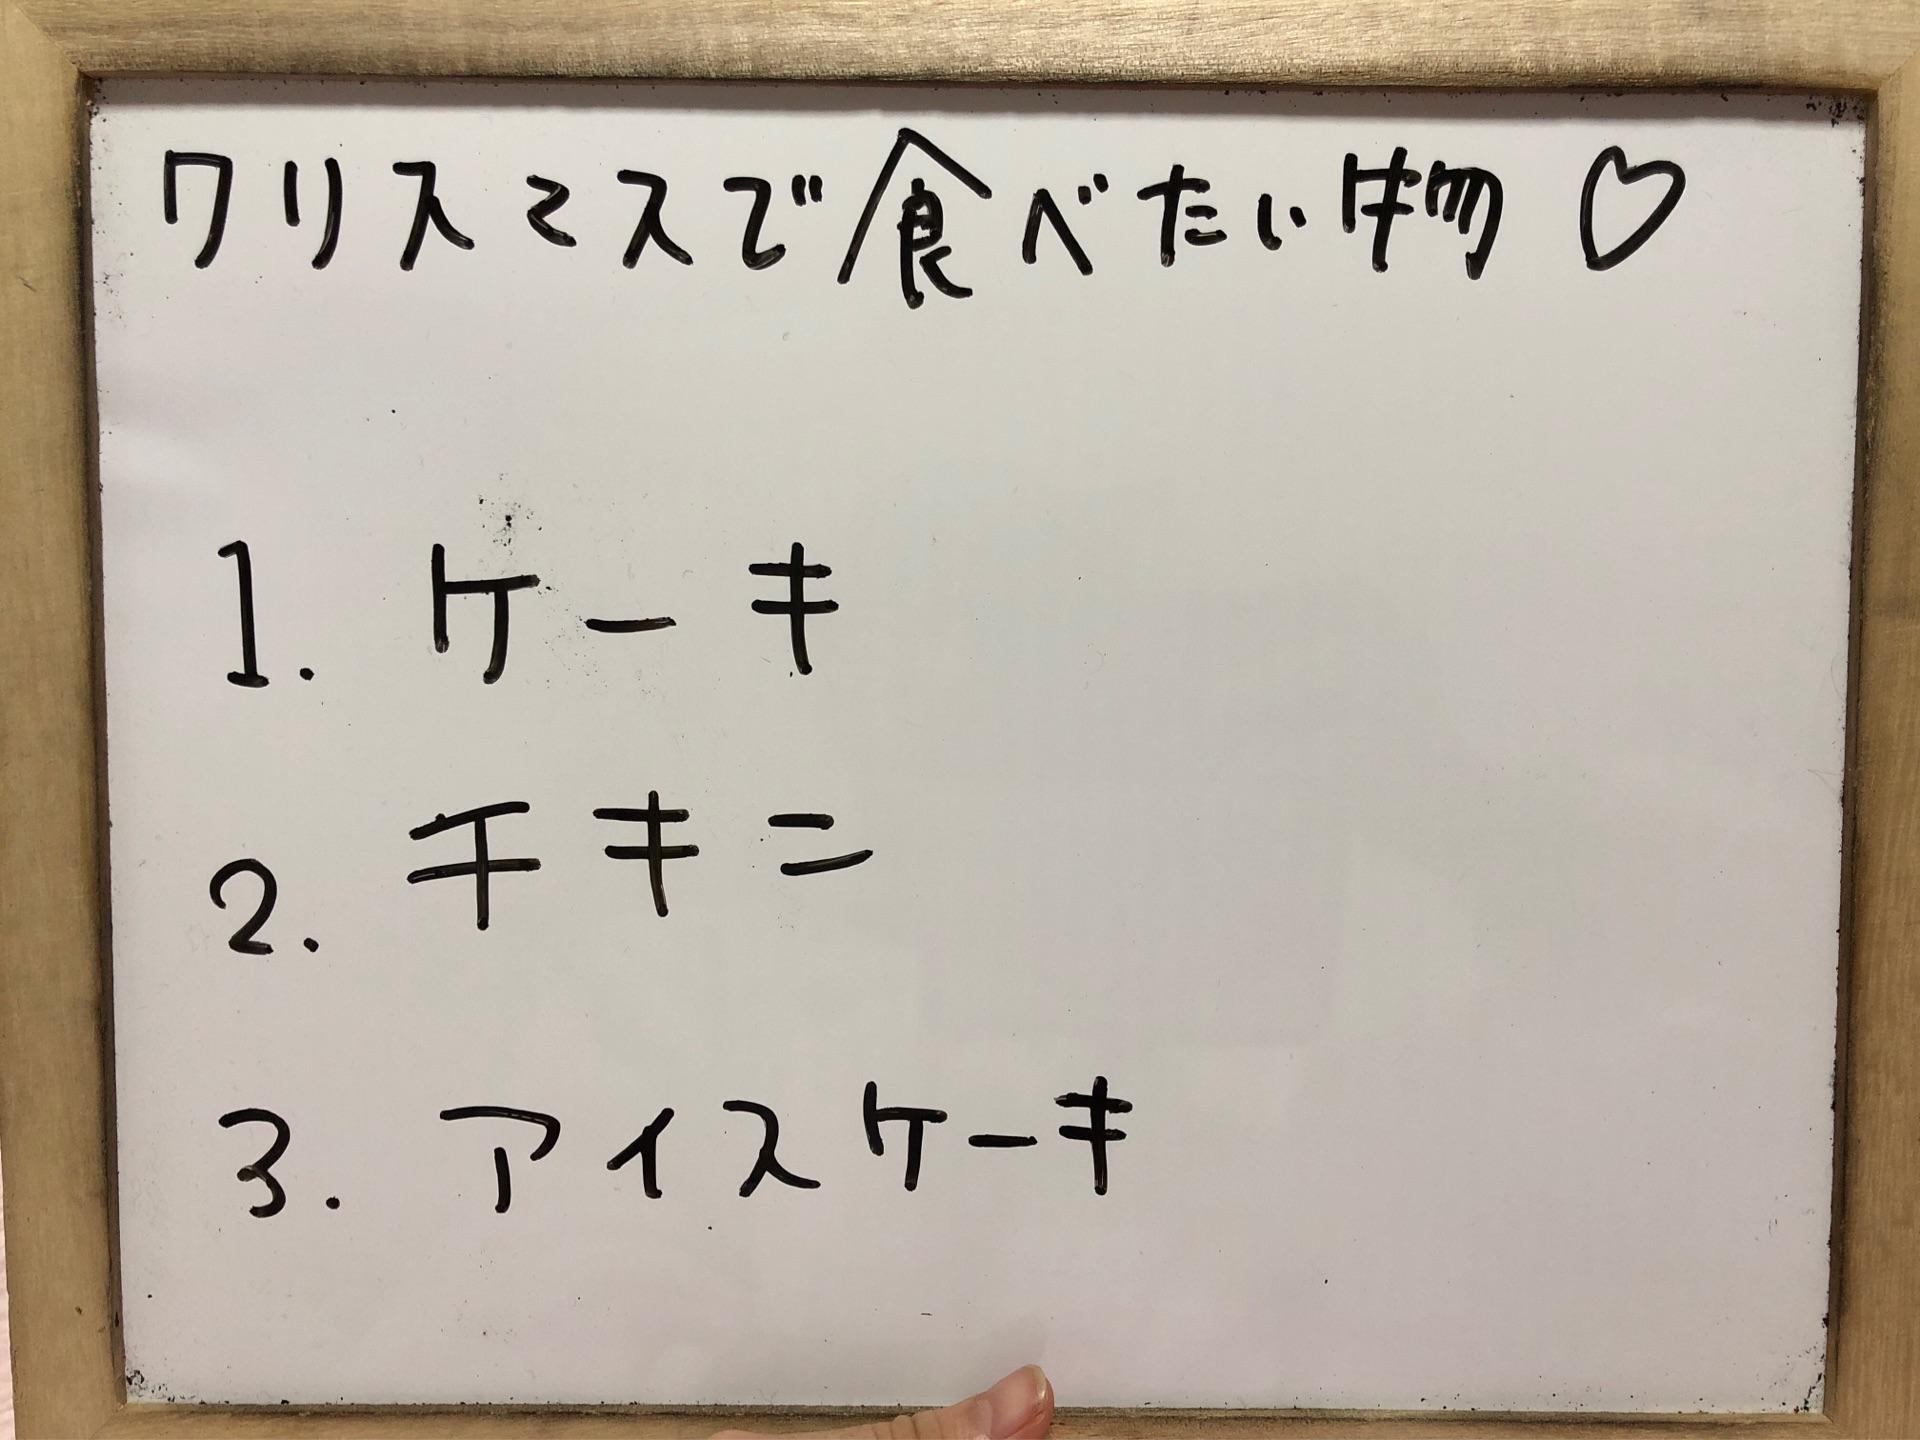 クリスマスで食べたい物♡
1. ケーキ
2. チキン
3. アイスケーキ